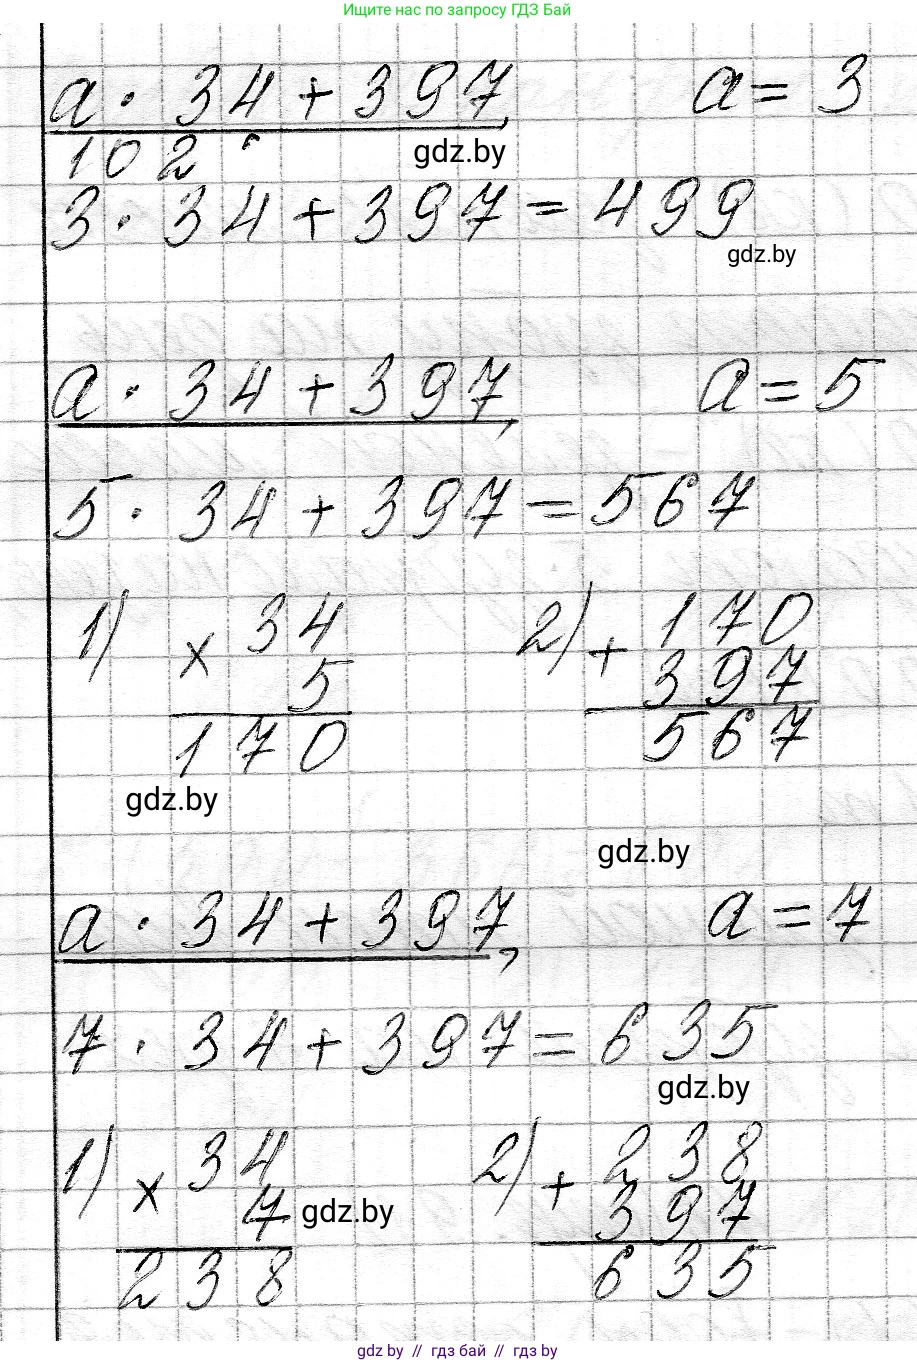 Ищите нас по запросу ГДЗ Бай
a · 34 + 397, a = 3
gdz.by
102
3 · 34 + 397 = 499
gdz.by
a · 34 + 397, a = 5
5 · 34 + 397 = 567
1) 34 2) 170
× 5 + 397
170 567
gdz.by
gdz.by
a · 34 + 397, a = 7
7 · 34 + 397 = 635
gdz.by
1) 34 2) 238
× 7 + 397
gdz.by
238 635
gdz.by // гдз бай // гдз by